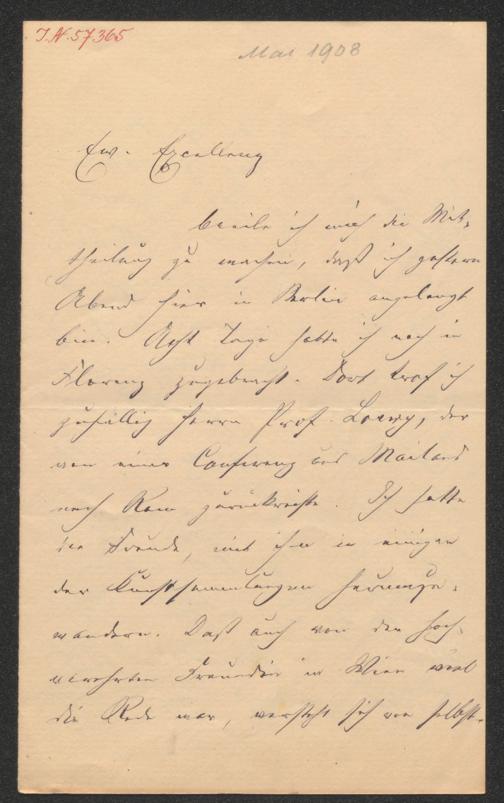 J.N. 57.365
Mai 1908
Ew. Excellenz
beeile ich mich die Mit-
theilung zu machen, daß ich gestern
Abend hier in Berlin angelangt
bin. Acht Tage hatte ich noch in
Florenz zugebracht. Dort traf ich
zufällig Herrn Prof. Loewy, der
von einer Conferenz aus Mailand
nach Rom zurückreiste. Ich hatte
die Freude, mit ihm in einigen
der Kunstsammlungen herumzu-
wandern. Daß auch von der hoch-
verehrten Freundin in Wien viel
die Rede war, versteht sich von selbst.